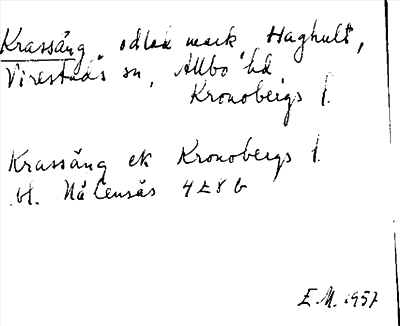 Krassäng, odlad mark Haghult,
Virestads sn, Allbo hd
Kronobergs l.
Krassäng ek Kronobergs l.
bl. Nä Censås 4 E 8 b
E.M. 1957